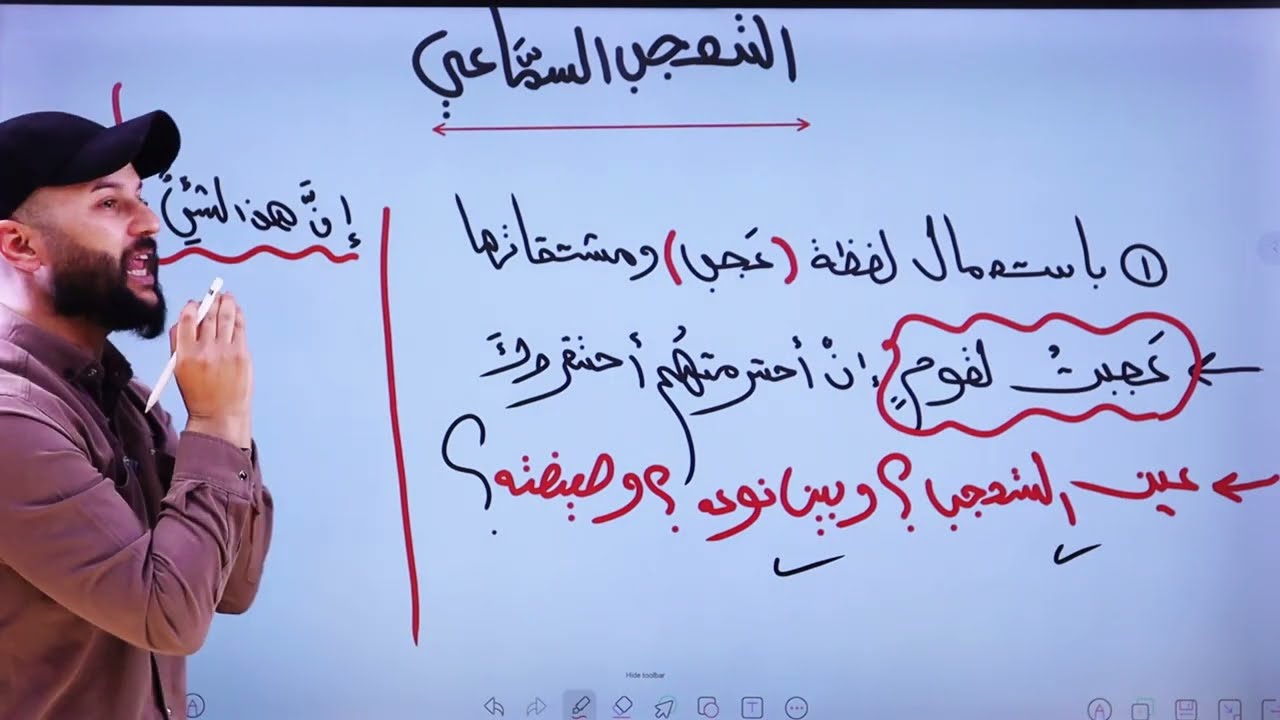 التعجب السَّماعي
① باستعمال لفظة (عَجب) ومشتقاتها
← عَجبتُ لقومٍ إنْ أحترمتهُم أحتقروكَ
← عين التعجب؟ وبين نوعه؟ وصيغته؟
إنَّ هذا لشيءٌ
Hide toolbar